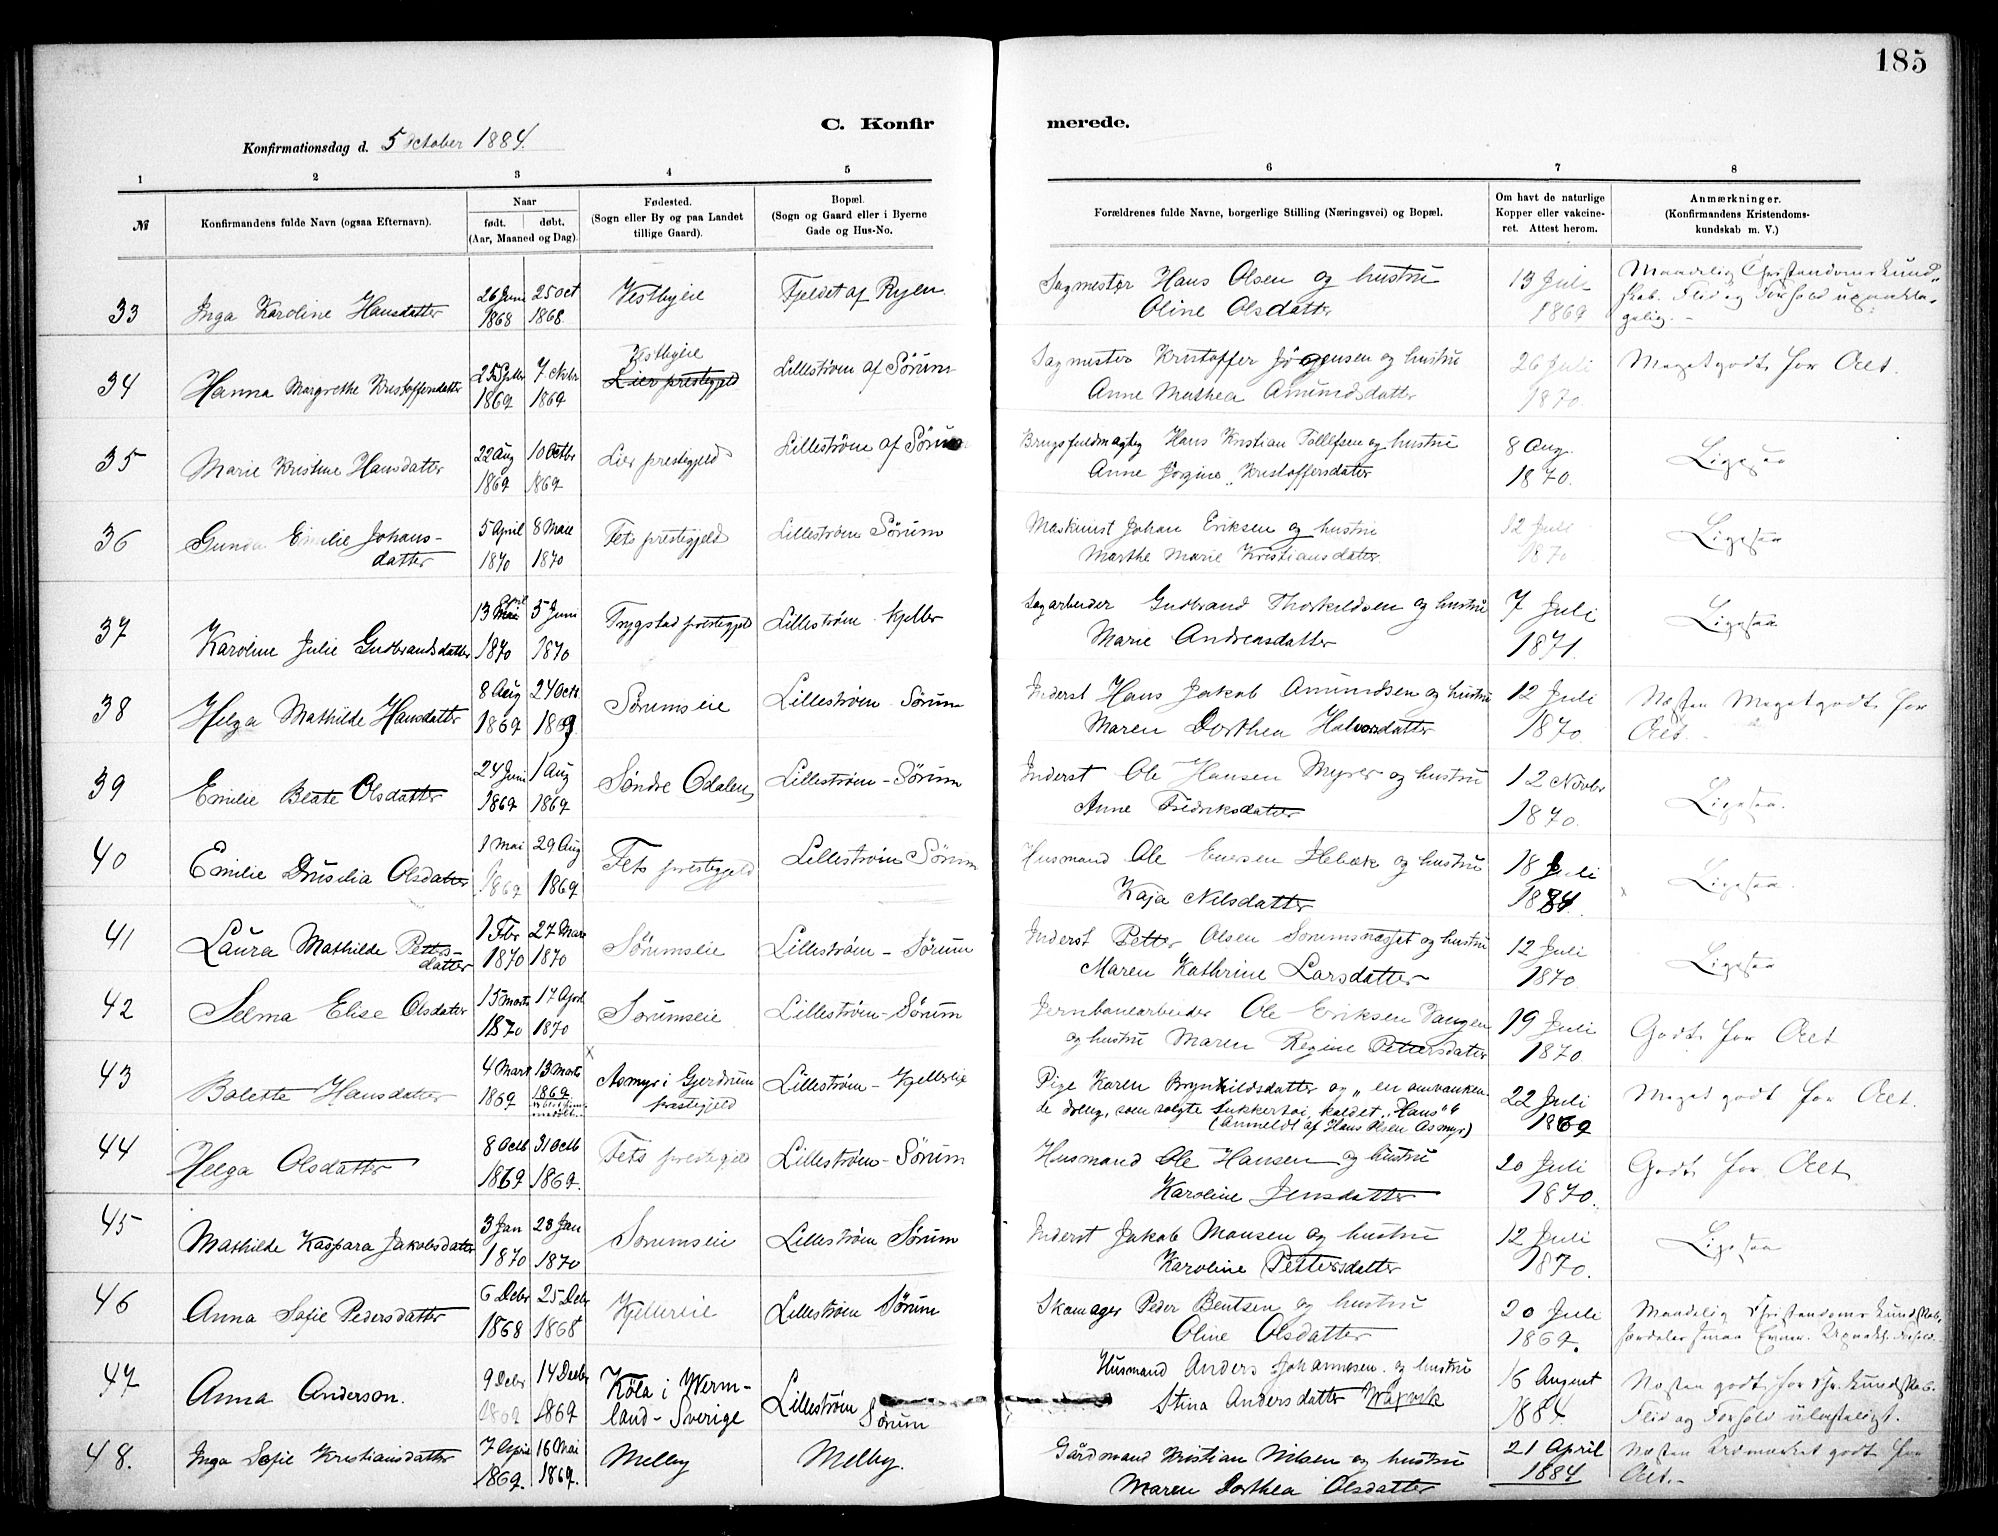 185
C. Konfir merede.
Konfirmationsdag d. 5 October 1884.
1 2 3 4 5 6 7 8
№
Konfirmandens fulde Navn (ogsaa Efternavn).
Naar
født. døbt.
(Aar, Maaned og Dag).
Fødested.
(Sogn eller By og paa Landet
tillige Gaard).
Bopæl.
(Sogn og Gaard eller i Byerne
Gade og Hus-No.
Forældrenes fulde Navne, borgerlige Stilling (Næringsvei) og Bopæl.
Om havt de naturlige
Kopper eller vakcine-
ret. Attest herom.
Anmærkninger.
(Konfirmandens Kristendoms-
kundskab m. V.)
33 Inga Karoline Hansdatter 26 Juni 1868 25 Oct 1868. Vestbyeie Fjeldet af Ryen. Sagmester Hans Olsen og hustru
Oline Olsdatter 13 Juli 1869 Maadelig Christendomskund-
skab. Flid og Forhold upaakla-
gelig. -
34 Hanna Margrethe Kristoffersdatter 1869 7 Oktbr 1869 Vestbyeie
Lier prestegjeld Lillestrøm af Sørum Sagmester Kristoffer Jörgensen og hustru
Anne Mathea Amundsdatter 26 Juli 1870. Meget godt for Alt.
35 Marie Kristine Hansdatter 22 Aug 1869 10 Octbr 1869 Lier prestegjeld Lillestrøm af Sørum Brugsfuldmægtig Hans Kristian Tollefsen og hustru
Anne Jörgine Kristoffersdatter 8 Aug. 1870. Ligesaa
36 Gunda Emilie Johans-
datter 5 April 1870 8 Mai 1870 Fets prestegjeld Lillestrøm Sørum Maskinist Johan Eriksen og hustru
Marthe Marie Kristiansdatter. 12 Juli 1870 Ligesaa
37 Karoline Julie Gudbrandsdatter 13 Mai April 1870 5 Juni 1870 Trygstad prestegjeld Lillestrøm Kjeller Sagarbeider Gudbrand Thorkildsen og hustru
Marie Andreasdatter 7 Juli 1871. Ligesaa
38 Helga Mathilde Hansdatter 8 Aug 1869 24 Octb 1869 Sørumseie Lillestrøm Sørum Inderst Hans Jakob Amundsen og hustru
Maren Dorthea Halvorsdatter 12 Juli 1870. Næsten Meget godt for
Alt. -
39 Emilie Beate Olsdatter 24 Juni 1869 1 Aug 1869 Søndre Odalen Lillestrøm - Sørum Inderst Ole Hansen Myrer og hustru
Anne Fredriksdatter 12 Novbr 1870. Ligesaa.
40 Emilie Drusilia Olsdatter 1 Mai 1869 29 Aug 1869 Fets prestegjeld Lillestrøm Sørum Husmand Ole Enersen Hebæk og hustru
Kaja Nilsdatter 18 Juli 1884. Ligesaa.
41 Laura Mathilde Petters-
datter 1 Febr 1870 27 Mars 1870 Sørumseie Lillestrøm - Sørum Inderst Petter Olsen Sørumsnæsset og hustru
Maren Kathrine Larsdatter 12 Juli 1870. Ligesaa
42 Selma Elise Olsdatter 15 Marts 1870 17 April 1870 Sørumseie Lillestrøm - Sørum Jernbanearbeider Ole Eriksen Vangen
og hustru Maren Regine Pettersdatter 19 Juli 1870 Godt for Alt
43 Balette Hansdatter 4 Mars 1869 13 Marts 1869 x Asmyr i Gjerdrum
prestegjeld Lillestrøm - Kjellerlie Pige Karen Brynhildsdatter og „en omvanken-
de dreng, som solgte sukkertøi, kaldet „Hans"“
(Anmeldt af Hans Olsen Asmyr) 22 Juli 1869 Meget godt for Alt.
44 Helga Olsdatter 8 Octb 1869 31 Octb 1869. Fets prestegjeld Lillestrøm - Sørum Husmand Ole Hansen og hustru
Karoline Jensdatter 20 Juli 1870. Godt for Alt
45 Mathilde Kaspara Jakobsdatter 3 Jan 1870 23 Jan 1870 Sørumseie Lillestrøm Sørum Inderst Jakob Monsen og hustru
Karoline Pettersdatter 12 Juli 1870. Ligesaa
46 Anna Sofie Pedersdatter 6 Debr 1868 25 Debr 1868 Kjellereie Lillestrøm Sørum Skomager Peder Bentsen og hustru
Oline Olsdatter 20 Juli 1869. Maadelig Christendomskundskab,
særdeles smaa Evner. Forhold.
47 Anna Anderson. 9 Debr 1869 14 Decbr 1869 Köla i Werm-
land - Sverige Lillestrøm
Sørum Husmand Anders Johannesen og hustru
Stina Andersdatter 16 August 1884 Næsten godt for Chr. kundskab.
Flid og Forhold ulasteligt.
48. Inga Sofie Kristiansdatter 7 April 1869. 16 Mai 1869. Melby Melby. Gårdmand Kristian Nilsen og hustru
Maren Dorthea Olsdatter 21 April 1884 Næsten Udmærket godt for
Alt. -